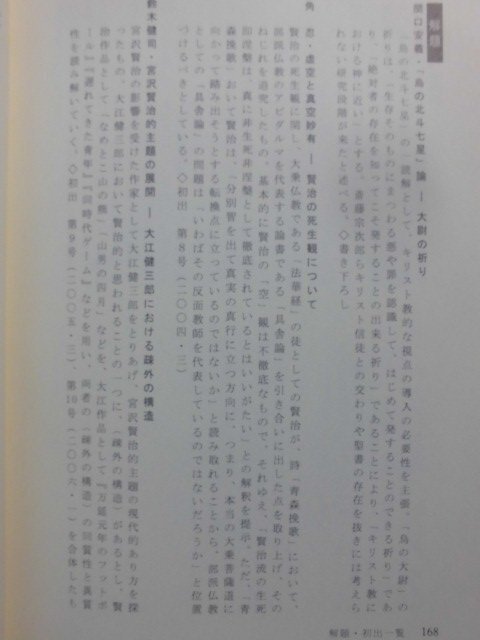 解題
関口安義・「烏の北斗七星」論 ― 大尉の祈り
「烏の北斗七星」の一読解として、キリスト教的な視点の導入の必要性を主張。「烏の大尉」の
祈りは、「生存そのものにまつわる悪や罪を認識して、はじめて発することのできる祈り」であ
り、「絶対者の存在を知ってこそ発することの出来る祈り」であることにより、「キリスト教に
おける神に近い」とする。斎藤宗次郎らキリスト信徒との交わりや聖書の存在を抜きには考えら
れない研究段階が来たと述べる。◇書き下ろし
角 忍・虚空と真空妙有 ― 賢治の死生観について
賢治の死生観に関し、大乗仏教である「法華経」の徒としての賢治が、詩「青森挽歌」において、
部派仏教のアビダルマを代表する論書である「具舎論」を引き合いに出した点を取り上げ、その
ねじれを追究したもの。基本的に賢治の「空」観は不徹底なもので、それゆえ、「賢治流の生死
即涅槃は、真に非生死非涅槃として徹底されているとはいいがたい」との解釈を提示。ただ、「青
森挽歌」において賢治は、「分別智を出て真実の真行に立つ方向に、つまり、本当の大乗菩薩道に
向かって踏み出そうとする転換点に立っているのではないか」と読み取れることから、部派仏教
としての「具舎論」の問題は「いわばその反面教師を代表しているのではないだろうか」と位置
づけるべきとしている。◇初出 第8号（二〇〇四・三）
鈴木健司・宮沢賢治的主題の展開 ― 大江健三郎における疎外の構造
宮沢賢治の影響を受けた作家として大江健三郎をとりあげ、宮沢賢治的主題の現代的あり方を探
ったもの。大江健三郎において賢治的と思われることの一つに、〈疎外の構造〉があるとし、賢
治作品として「なめとこ山の熊」「山男の四月」などを、大江作品として『万延元年のフットボ
ール』『遅れてきた青年』『同時代ゲーム』などを用い、両者の〈疎外の構造〉の同質性と異質
性を読み解いていく。◇初出 第9号（二〇〇五・三）、第10号（二〇〇六・一）を合体したも
解題・初出一覧 168